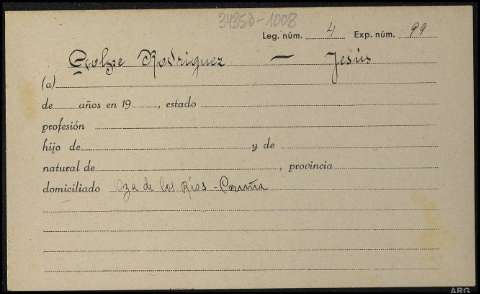 34350-1008
Leg. núm. 4 Exp. núm. 99
Golpe Rodriguez — Jesús
(a)
de años en 19, estado
profesión
hijo de y de
natural de, provincia
domiciliado Oza de los Ríos - Coruña
ARG